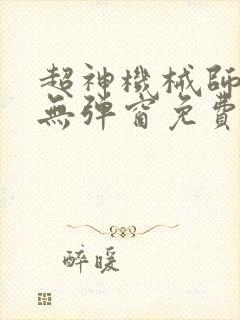 超神機械師
無彈窗免費
醉暖